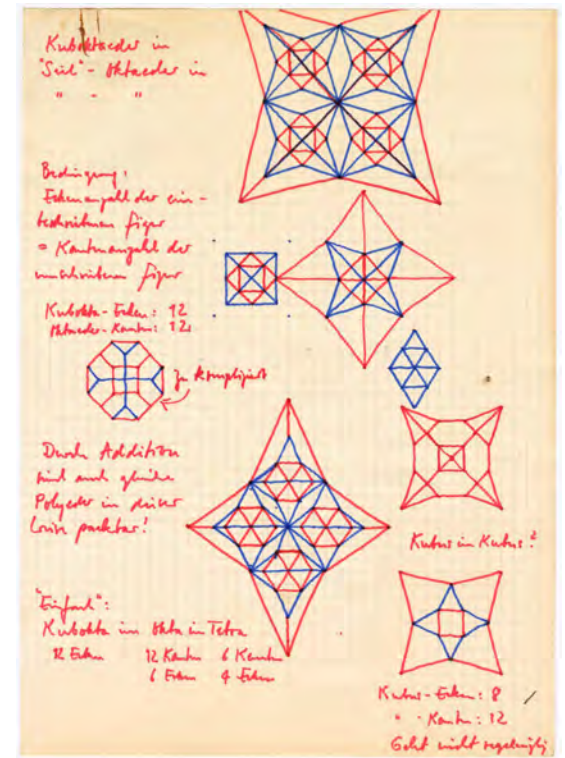 Kuboktaeder in
"Seil"-Oktaeder in
" - "
Bedingung:
Eckenanzahl der ein-
beschriebenen Figur
= Kantenanzahl der
umschriebenen Figur
Kubokta-Ecken: 12
Oktaeder-Kanten: 12
zu kompliziert
Durch Addition
sind auch gleiche
Polyeder in dieser
Weise packbar!
Kubus im Kubus?
"Einfach":
Kubokta im Okta in Tetra
12 Ecken 12 Kanten 6 Kanten
6 Ecken 4 Ecken
Kubus-Ecken: 8
" - Kanten: 12
Geht nicht regelmäßig